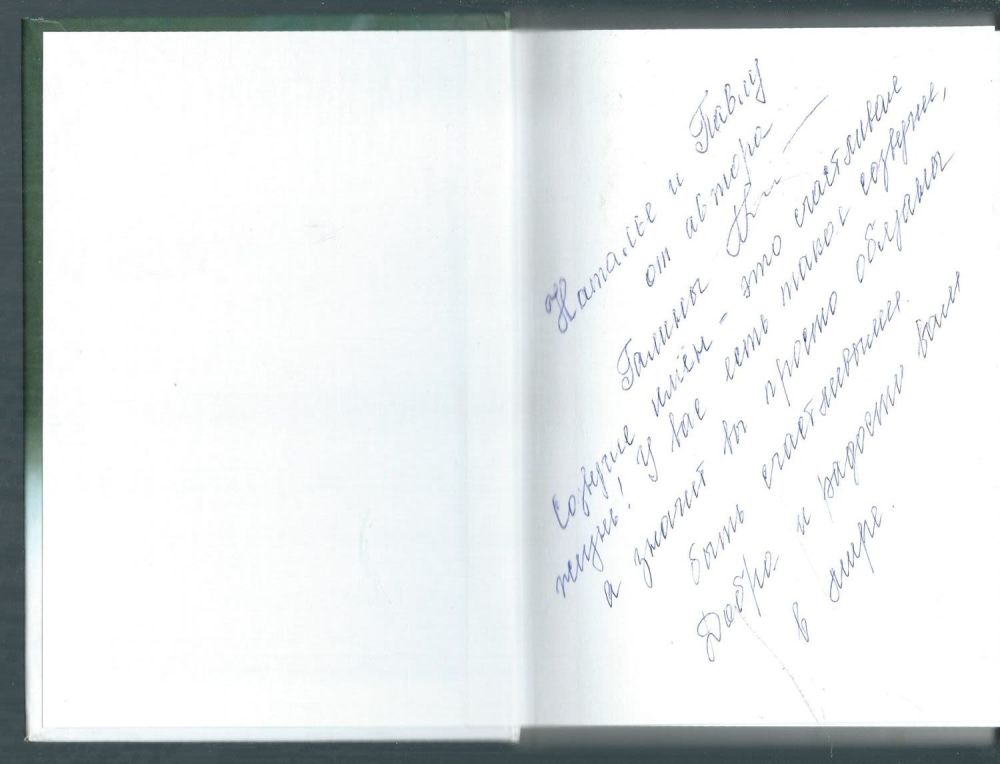 Наталье и Павлу
от автора
Галины
Созвучие имён - это счастливая
жизнь! У вас есть такое созвучие,
а значит вы просто обязаны
быть счастливыми.
Добра и радости вам
в мире.